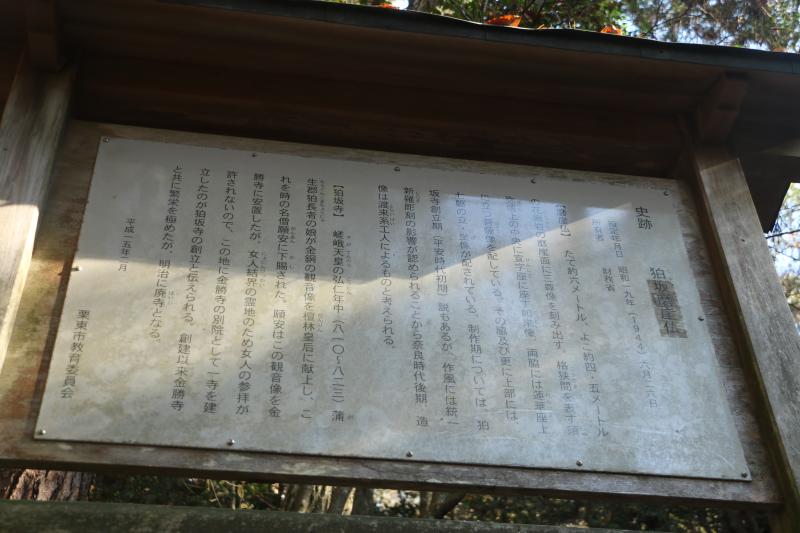 史跡 狛坂磨崖仏
指定年月日 昭和一九年(1944)六月二六日
所有者 財務省
【磨崖仏】 たて約六メートル、よこ約四・五メートル
の花崗岩の磨崖面に三尊像を刻み出す。格狭間を表す須
弥壇上の中央に宣字座に座す如来像、両脇には蓮華座上
に立つ脇侍像を配している。その脇及び更に上部には
十躯の立・坐像が配されている。制作期については、狛
坂寺創立期(平安時代初期)説もあるが、作風には統一
新羅彫刻の影響が認められることから奈良時代後期、造
像は渡来系工人によるものと考えられる。
【狛坂寺】 嵯峨天皇の弘仁年中(八一〇~八二三)蒲
生郡狛長者の娘が金銅の観音像を檀林皇后に献上し、こ
れを時の名僧願安に下賜された。願安はこの観音像を金
勝寺に安置したが、女人結界の霊地のため女人の参拝が
許されないので、この地に金勝寺の別院として一寺を建
立したのが狛坂寺の創立と伝えられる。創建以来金勝寺
と共に繁栄を極めたが、明治に廃寺となる。
平成一五年三月
栗東市教育委員会